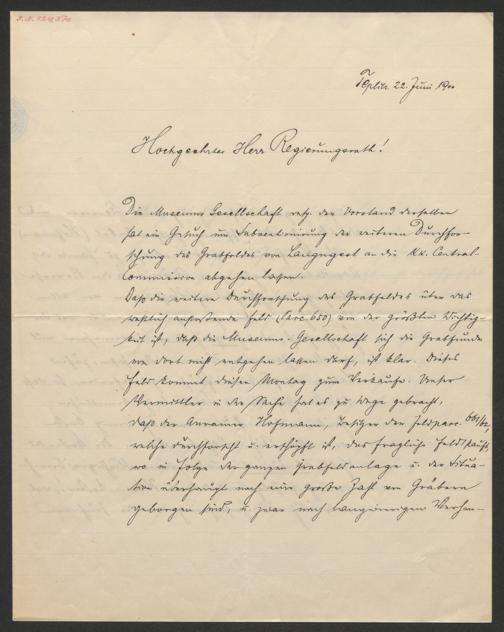 Teplitz 22. Juni 1900
Hochgeehrter Herr Regierungsrath!
Die Museums Gesellschaft resp. der Vorstand derselben
hat ein Gesuch um Subventionirung der weiteren Durchfor-
schung des Grabfeldes von Langugest an die kk. Central-
Commission abgehen lassen.
Daß die weitere Durchforschung des Grabfeldes über das
westlich anstoßende Feld (Parc 650) von der größten Wichtig-
keit ist, daß die Museums-Gesellschaft sich die Grabfunde
von dort nicht entgehen lassen darf, ist klar. Dieses
Feld kommt diesen Montag zum Verkaufe. Unser
Vermittler in der Sache hat es zu Wege gebracht,
daß der Anrainer Hofmann, Besitzer der Feldparc.
welche durchforscht u. erschöpft ist, das fragliche Feld kauft,
wo in Folge der ganzen Grabfeldanlage u. der Situa-
tion überhaupt noch eine große Zahl von Gräbern
geborgen sind, u. zwar nach langwierigem Verhan-